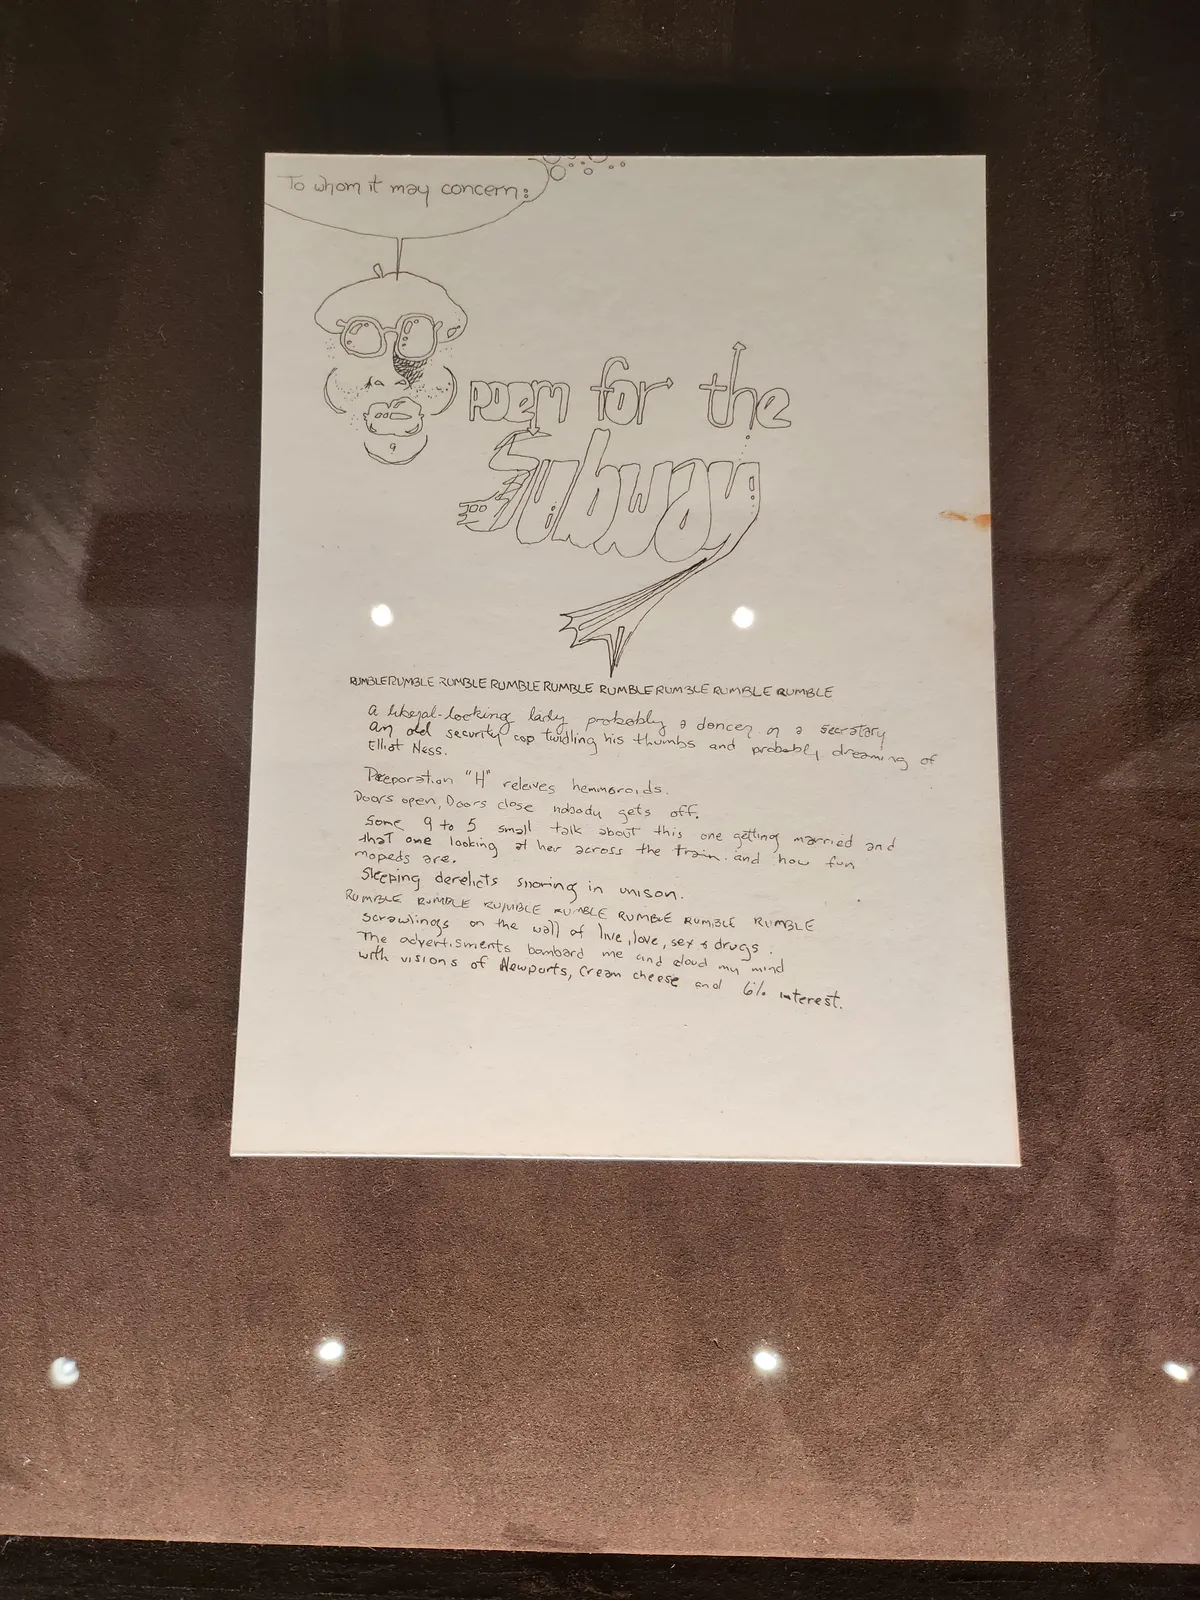 To whom it may concern:
Poem for the
Subway
RUMBLE RUMBLE RUMBLE RUMBLE RUMBLE RUMBLE RUMBLE RUMBLE RUMBLE
A liberal-looking lady probably a dancer or a secratary
An old security cop twidling his thumbs and probably dreaming of
Elliot Ness.
Preporation "H" releives hemmoroids.
Doors open, Doors close nobody gets off.
Some 9 to 5 small talk about this one getting married and
that one looking at her across the train and how fun
mopeds are.
Sleeping derelicts snoring in unison.
RUMBLE RUMBLE RUMBLE RUMBLE RUMBLE RUMBLE RUMBLE
Scrawlings on the wall of live, love, sex & drugs.
The advertisments bombard me and cloud my mind
with visions of Newports, Cream cheese and 6% interest.